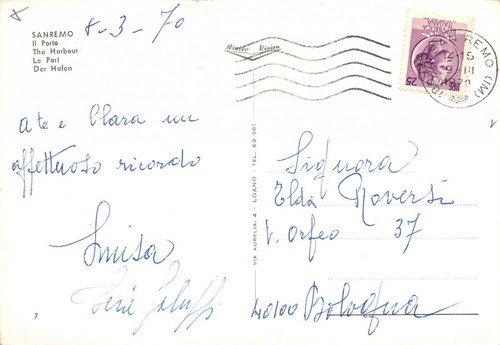 8-3-70
SANREMO
Il Porto
The Harbour
Le Port
Der Hafen
a te e Clara un
affettuoso ricordo
Luisa
7
VIA AURELIA, 4 - LOANO - TEL. 69.381
SANREMO (IM)
14-15
1970
25
Signora
Elda Roversi
V. Orfeo 37
40100 Bologna